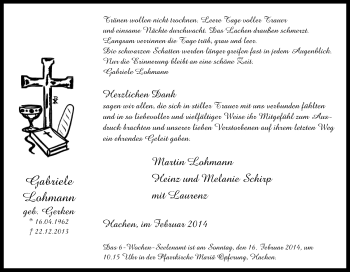 Tränen wollen nicht trocknen. Leere Tage voller Trauer
und einsame Nächte durchwacht. Das Lachen draußen schmerzt.
Langsam verrinnen die Tage trüb, grau und leer.
Die schwarzen Schatten werden länger greifen fast in jedem Augenblick.
Nur die Erinnerung bleibt an eine schöne Zeit.
Gabriele Lohmann
Herzlichen Dank
sagen wir allen, die sich in stiller Trauer mit uns verbunden fühlten
und in so liebevoller und vielfältiger Weise ihr Mitgefühl zum Aus-
druck brachten und unserer lieben Verstorbenen auf ihrem letzten Weg
ein ehrendes Geleit gaben.
Gabriele
Lohmann
geb. Gerken
* 16.04.1962
† 22.12.2013
Martin Lohmann
Heinz und Melanie Schirp
mit Laurenz
Hachen, im Februar 2014
Das 6-Wochen-Seelenamt ist am Sonntag, dem 16. Februar 2014, um
10.15 Uhr in der Pfarrkirche Mariä Opferung, Hachen.